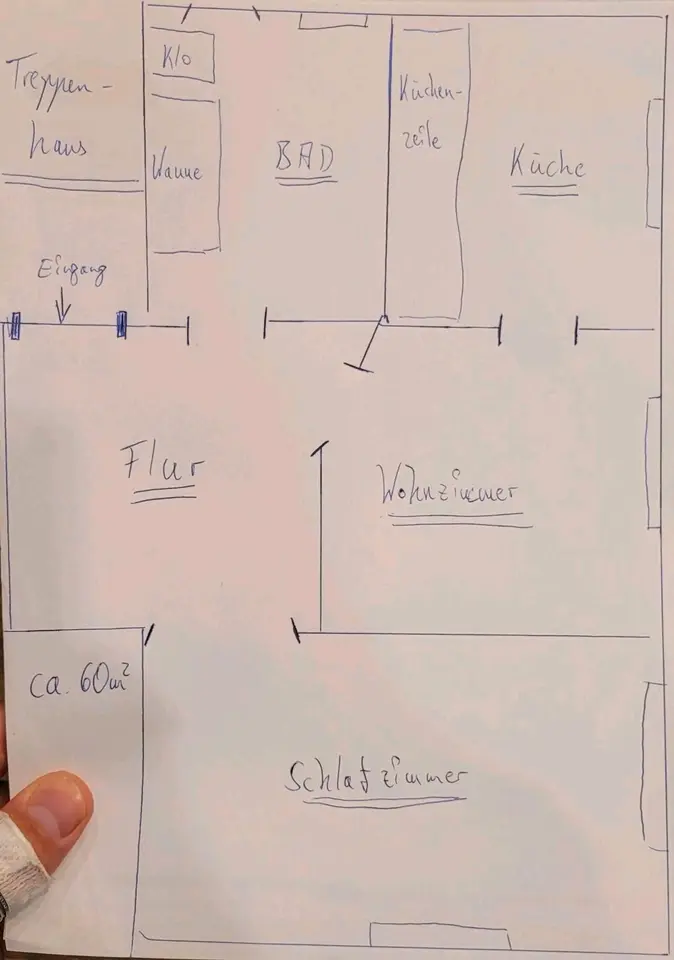 Treppen-
haus
Klo
Wanne
BAD
Küchen-
zeile
Küche
Eingang
Flur
Wohnzimmer
ca. 60m²
Schlafzimmer